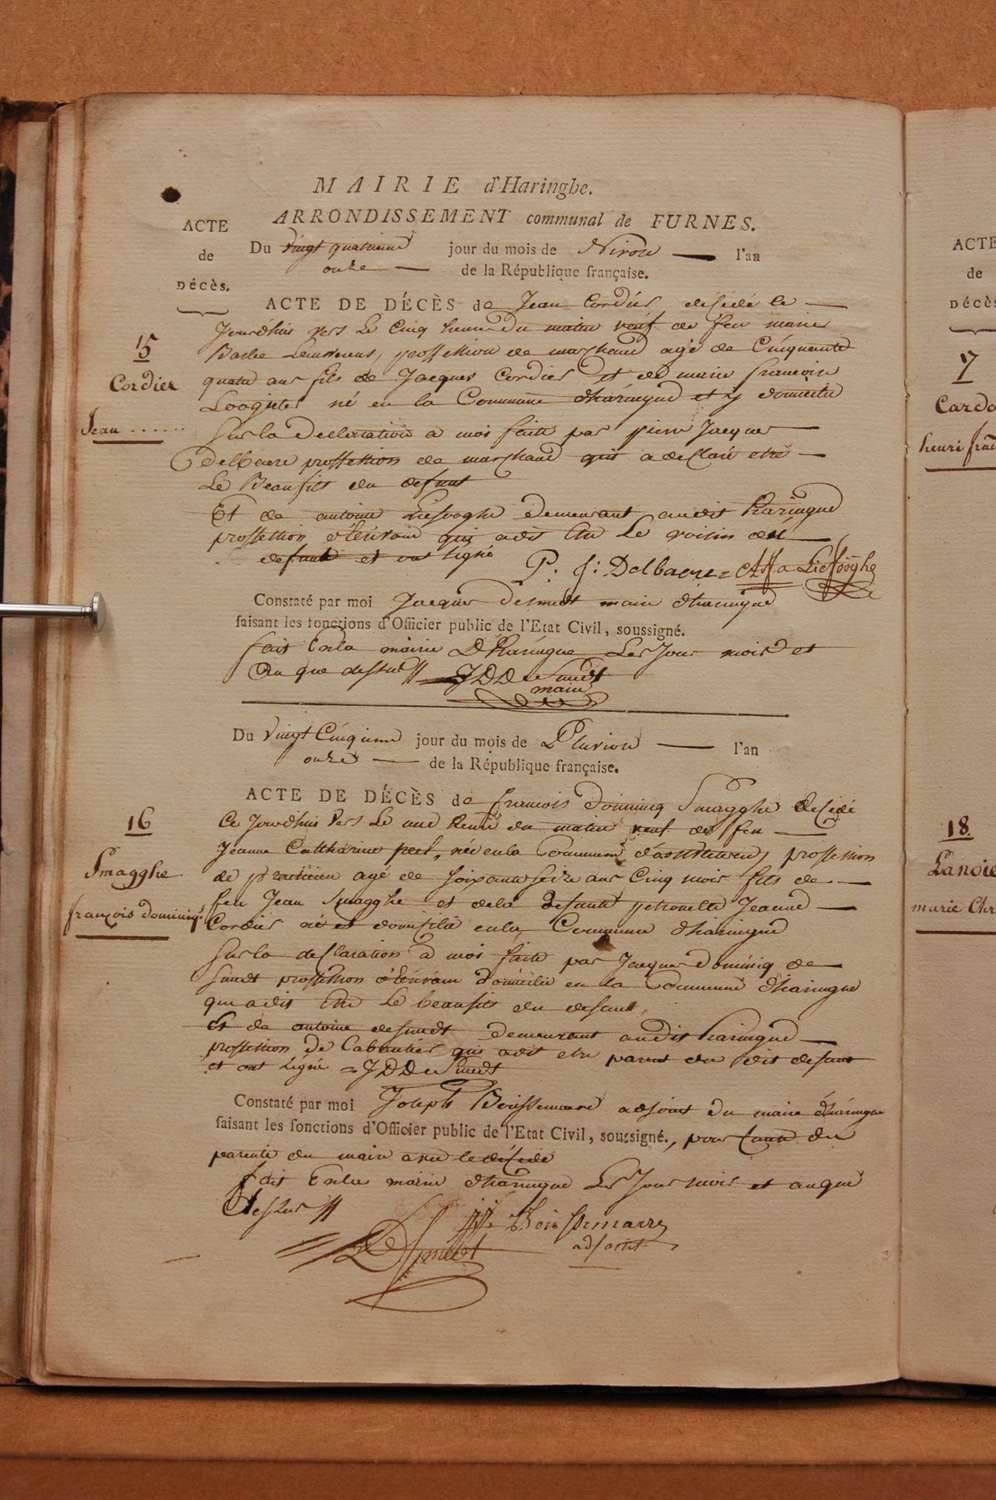 MAIRIE d'Haringhe.
ARRONDISSEMENT communal de FURNES.
ACTE
de
DÉCÈS.
Du vingt quatrieme jour du mois de Nivose l'an
onze de la République française.
15
Cordier
Jean
ACTE DE DÉCÈS de Jean Cordier desede le
Jourdhuis vers le Cinq heure du matin veuf de feu marie
Barbe profession de marchand agé de Cinquante
quatre ans fils de Jacques Cordier et de marie francoise
né en la Commune dharingue et y domicilie
Sur la Declaration a moi faite par pierre Jacque
Delbaere proffession de marchand qui a declaré etre
Le Beaufils du defunt
Et de antoine Liefooghe demeurant audit Haringue
proffession d'Ecrivain qui a dit etre Le voisin du
defunt et ont signé
P. J: Delbaere Liefooghe
Constaté par moi Jacque Desmedt maire dharingue
faisant les fonctions d'Officier public de l'Etat Civil, soussigné.
fait En la mairie D'Haringue Les Jour mois et
An que dessus //
J D De Smedt
maire
Du Vingt Cinquieme jour du mois de Pluviose l'an
onze de la République française.
16
Smagghe
françois dominiq
ACTE DE DÉCÈS de francois Dominiq Smagghe desedé
Ce Jourdhuis vers Le une heure du matin veuf de feu
Jeanne Catharine peel, née en la Commune profession
de practicien agé de Soixante seize ans Cinq mois fils de
feu Jean Smagghe et de la defunte petronelle Jeanne
Cordier né et domisilié en la Commune dharingue
Sur la desclaration à moi faite par Jacque dominiq de
Smedt profession d'Ecrivain domicilié en la Commune d'haringue
qui a dit Etre Le beaufils du defunt,
Et de antoine desmedt demeurant audit haringue
profession De Cabaretier qui a dit etre parent du dit defunt
et ont signé J D De Smedt
Constaté par moi Joseph Boissemaere adjoint du maire d'haringue
faisant les fonctions d'Officier public de l'Etat Civil, soussigné., pour Cause de
parenté du maire avec le desede
fait En la mairie dharingue Les Jour mois et an que
Dessus //
De Smedt
Boissemaere
adjoint
ACTE
de
DÉCÈS
17
henri
18.